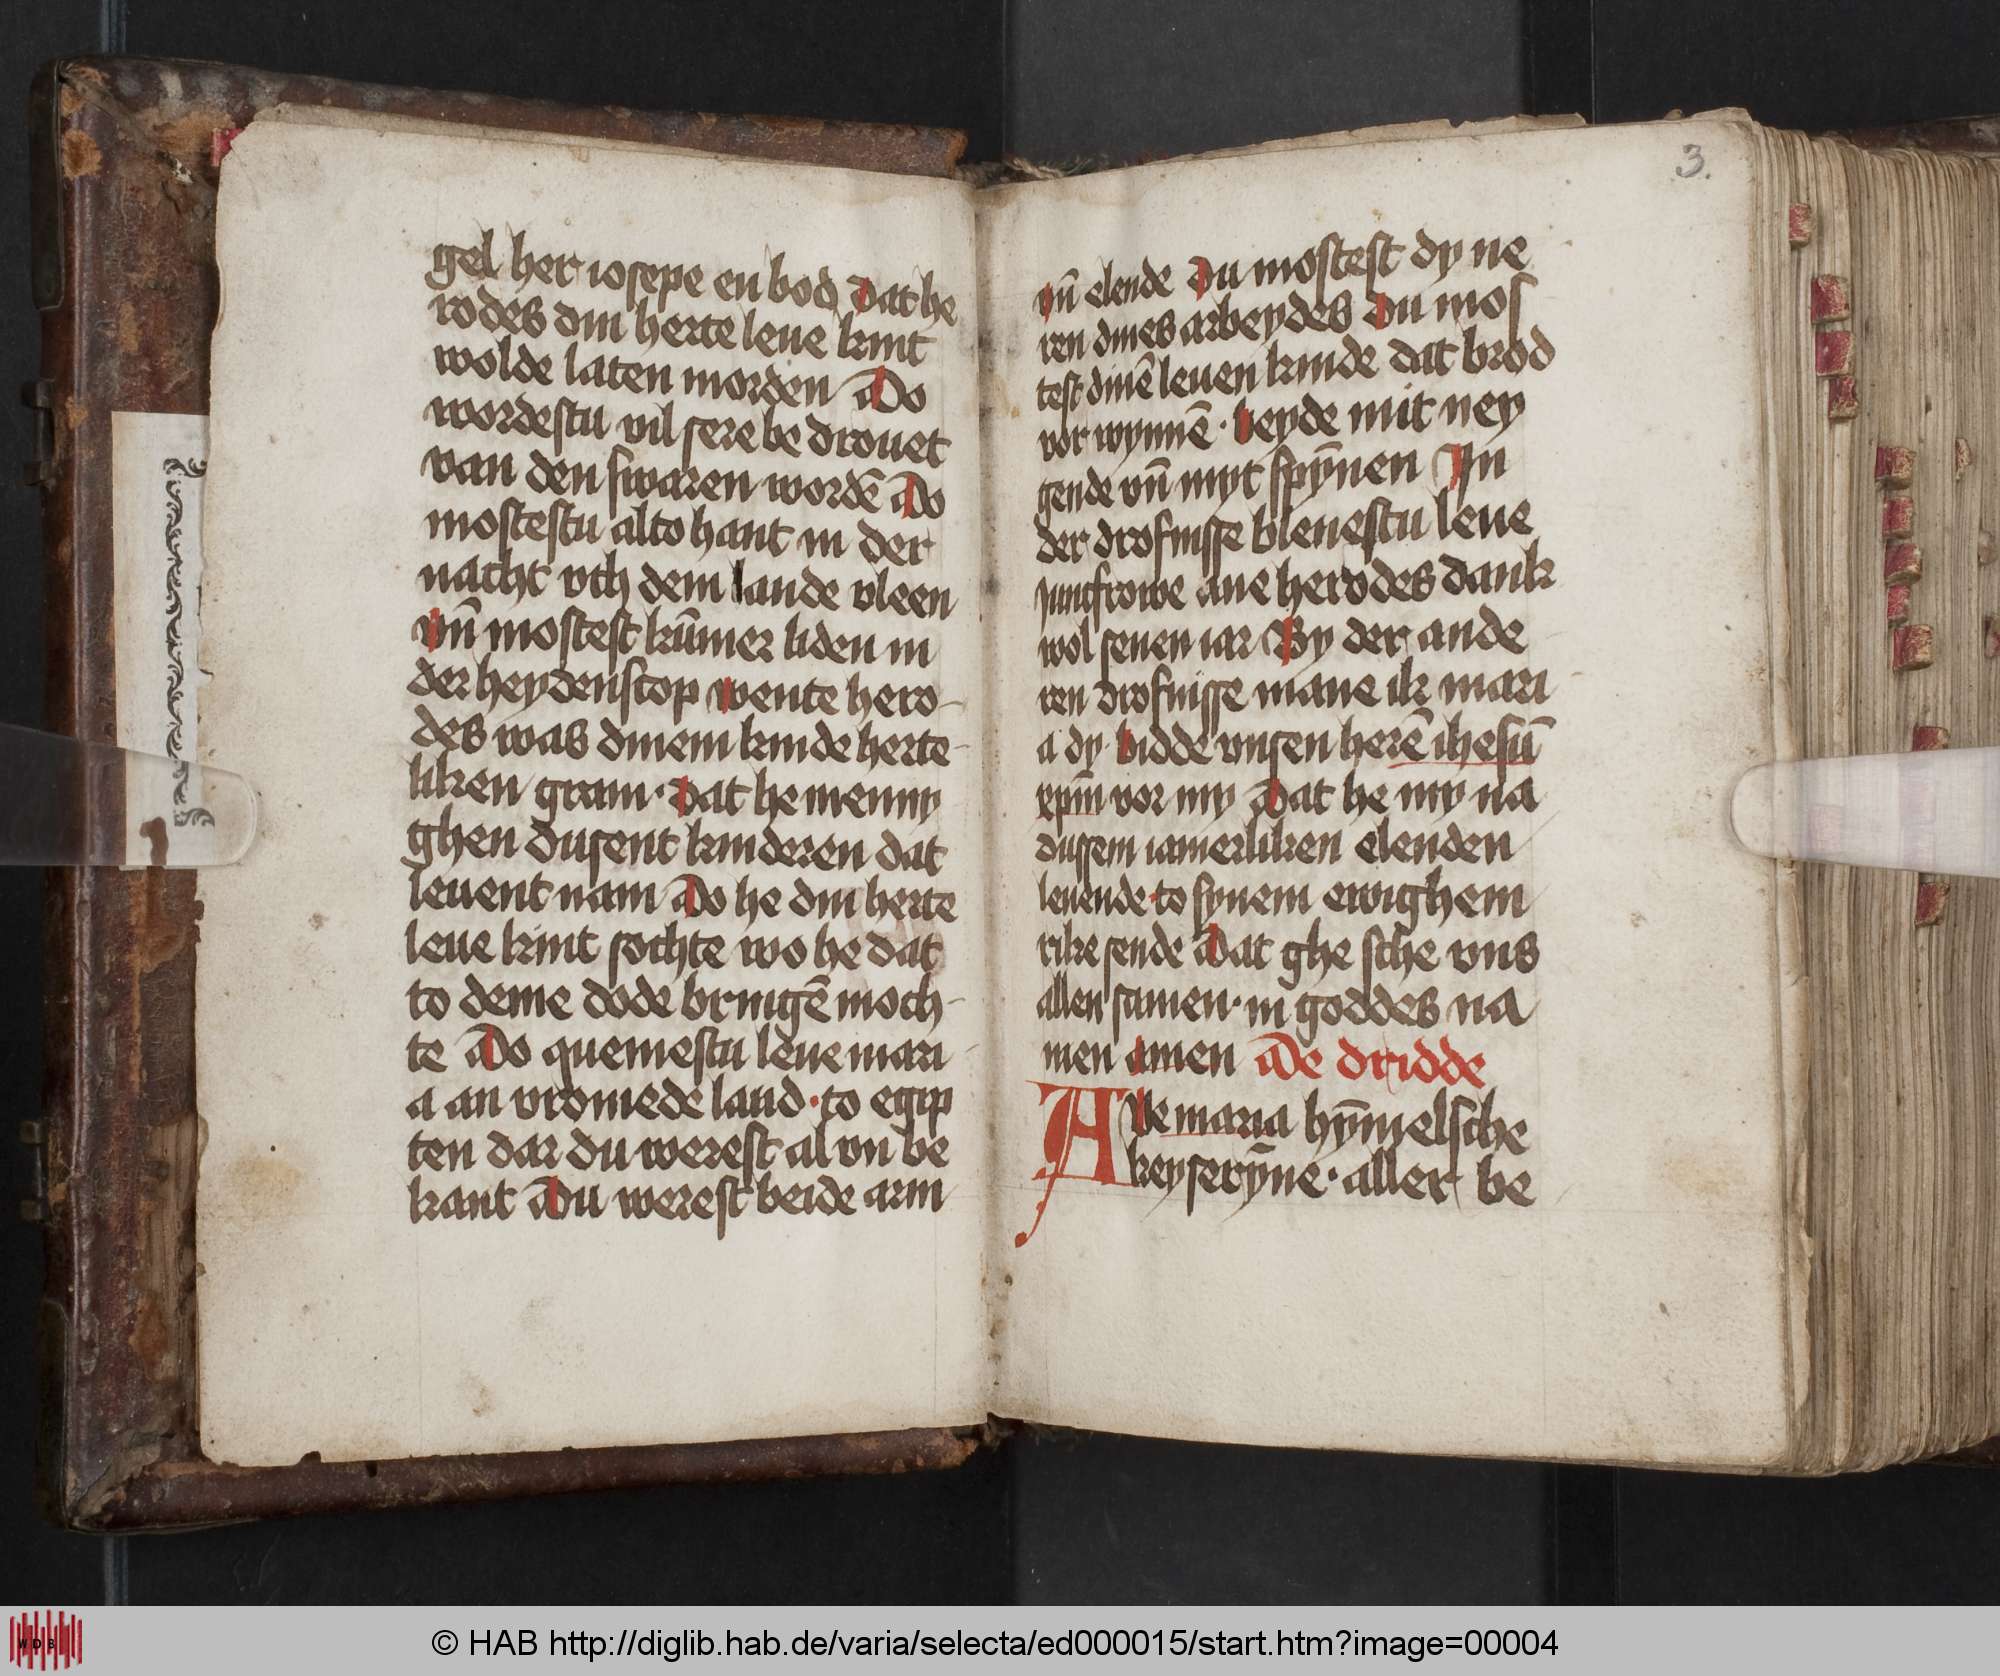 gel her iosepe en bod dat he
rodes din herte leue kint
wolde laten morden Do
wordestu vil sere be drouet
van den swaren wordē Do
mostestu alto hant in der
nacht vth dem lande vleen
vn̄ mostest kūmer liden in
der heydenscop wente hero-
des was dinem kinde herte-
liken gram· dat he menny
ghen dusent kinderen dat
leuent nam Do he din herte
leue kint sochte wo he dat
to deme dode bringē moch-
te Do quemestu leue mari
a an vromede land· to egip
ten dar du werest al vn be
kant Du werest beide arm
3.
vn̄ elende Du mostest dy ne
ren dines arbeydes Du mos
test dinē leuen kinde dat brod
vor wynnē· beyde mit ney
gende vn̄ myt spȳnen In
der drofnisse bleuestu leue
juncfrowe ane herodes dank
wol seuen iar By der ande
ren drofnisse mane ik mari
a dy· bidde vnsen herē ihesū
xpm̄ vor my Dat he my na
dussem iamerliken elenden
leuende· to synem ewighem
rike sende Dat ghe sche vns
allen samen· in goddes na
men amen De dridde
AVe maria hȳmelsche
keyserȳne· aller be
WDB
© HAB http://diglib.hab.de/varia/selecta/ed000015/start.htm?image=00004